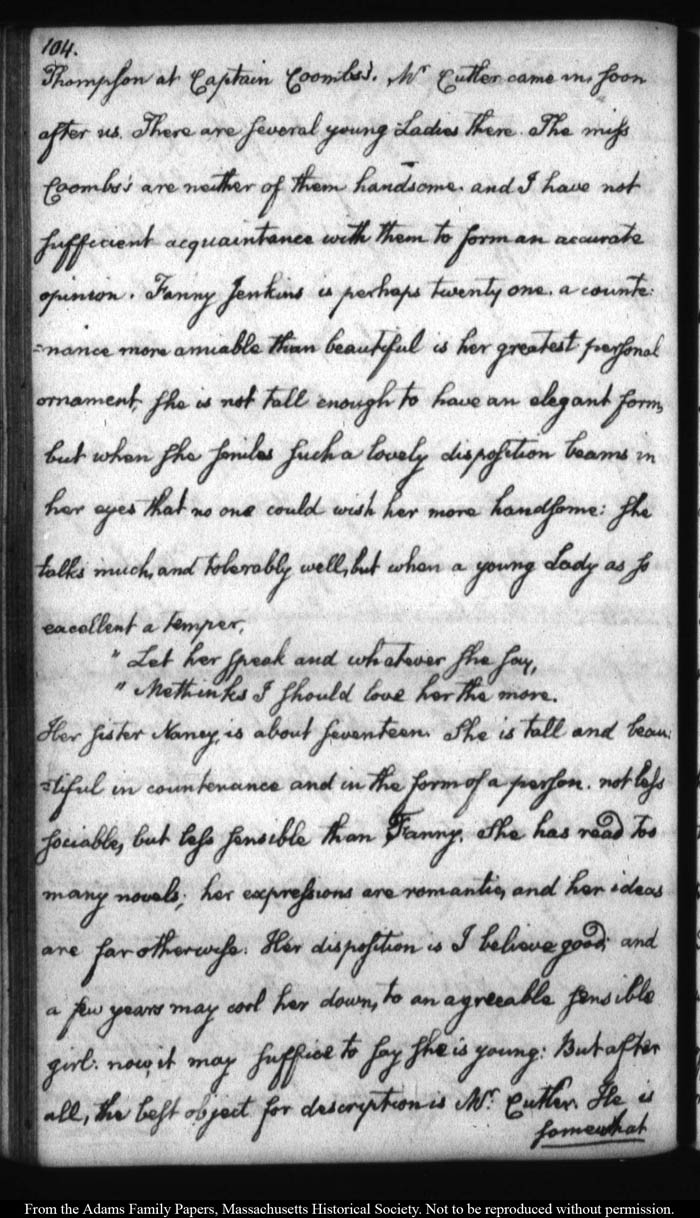 104.
Thompson at Captain Coombs's. Mr Cutler came in, soon
after us. There are several young Ladies there. The miss
Coombs's are neither of them handsome. and I have not
sufficient acquaintance with them to form an accurate
opinion. Fanny Jenkins is perhaps twenty one. a counte:
=nance more amiable than beautiful is her greatest personal
ornament, she is not tall enough to have an elegant form,
but when she smiles such a lovely disposition beams in
her eyes that no one could wish her more handsome: she
talks much, and tolerably well, but when a young Lady as so
excellent a temper,
" Let her speak and whatever she say,
" Methinks I should love her the more.
Her sister Nancy, is about seventeen. She is tall and beau:
=tiful in countenance and in the form of a person. not less
sociable, but less sensible than Fanny. She has read too
many novels; her expressions are romantic, and her ideas
are far otherwise. Her disposition is I believe good; and
a few years may cool her down, to an agreeable sensible
girl: now, it may suffice to say she is young: But after
all, the best object for description is Mr. Cutler. He is
somewhat
From the Adams Family Papers, Massachusetts Historical Society. Not to be reproduced without permission.